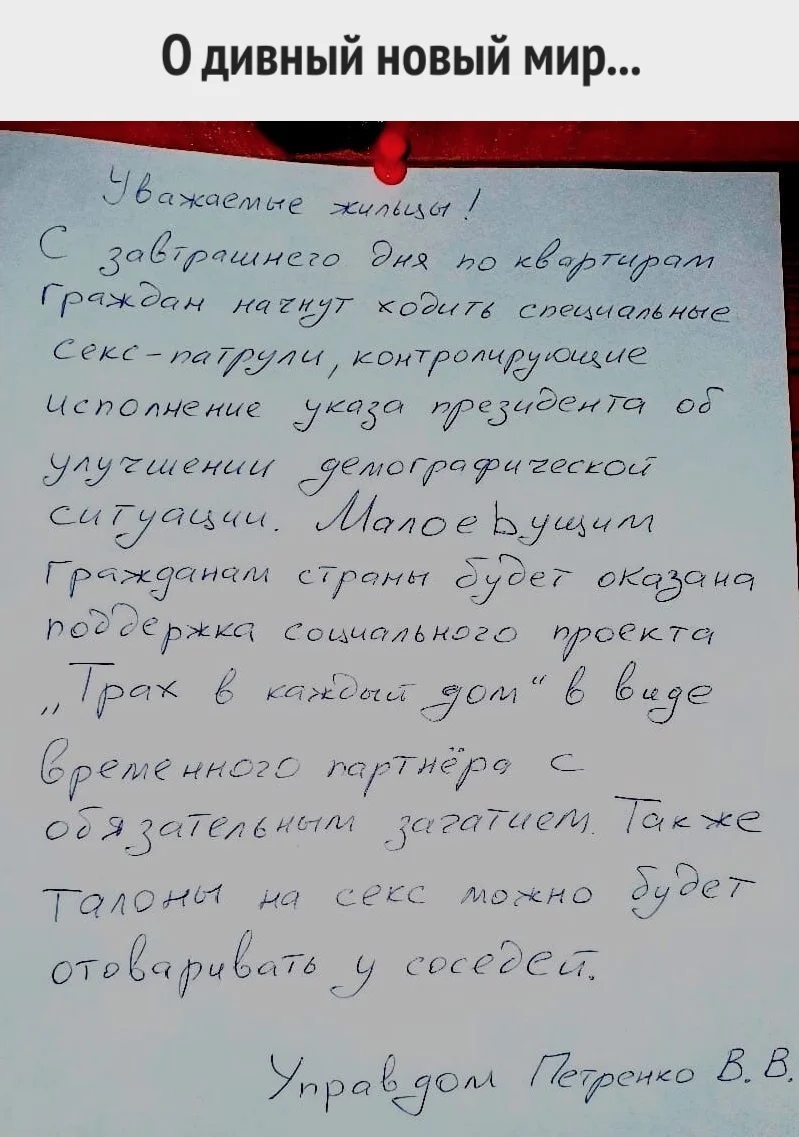 О дивный новый мир...
Уважаемые жильцы!
С завтрашнего дня по квартирам
граждан начнут ходить специальные
секс-патрули, контролирующие
исполнение указа президента об
улучшении демографической
ситуации. МалоеЬущим
гражданам страны будет оказана
поддержка социального проекта
„Трах в каждый дом“ в виде
временного партнёра с
обязательным зачатием. Также
талоны на секс можно будет
отоваривать у соседей.
Управдом Петренко В. В.